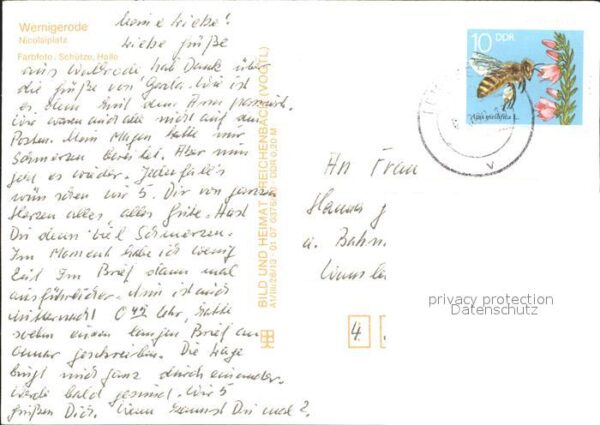 Wernigerode
Nicolaiplatz
Farbfoto: Schütze, Halle
Meine Liebe!
Liebe Grüße
aus hab Dank über
die Grüße von Wie ist
es denn mit dem Arm passiert.
Wir waren auf dem
Posten. Mein Magen hatte mir
Schmerzen bereitet. Aber nun
geht es wieder. Jedenfalls
wünschen wir 5. Dir von ganzem
Herzen alles, alles Gute. Hast
Du denn viel Schmerzen.
Im Moment habe ich wenig
Zeit. Im Brief dann mal
ausführlicher. Nun ist auch
Mitternacht 0 Uhr, hatte
soeben einen langen Brief an
geschrieben. Die Lage
bringt mich ganz durcheinander.
Werde bald gesund. Wir 5
grüßen Dich. Wann kommst Du mal?
BILD UND HEIMAT REICHENBACH (VOGTL)
A1/III/26/13 · 01 07 0376 · DDR 0,20 M
10 DDR
Apis mellifica L.
V
An Frau
Hanna
a. Bahn
privacy protection
Datenschutz
4